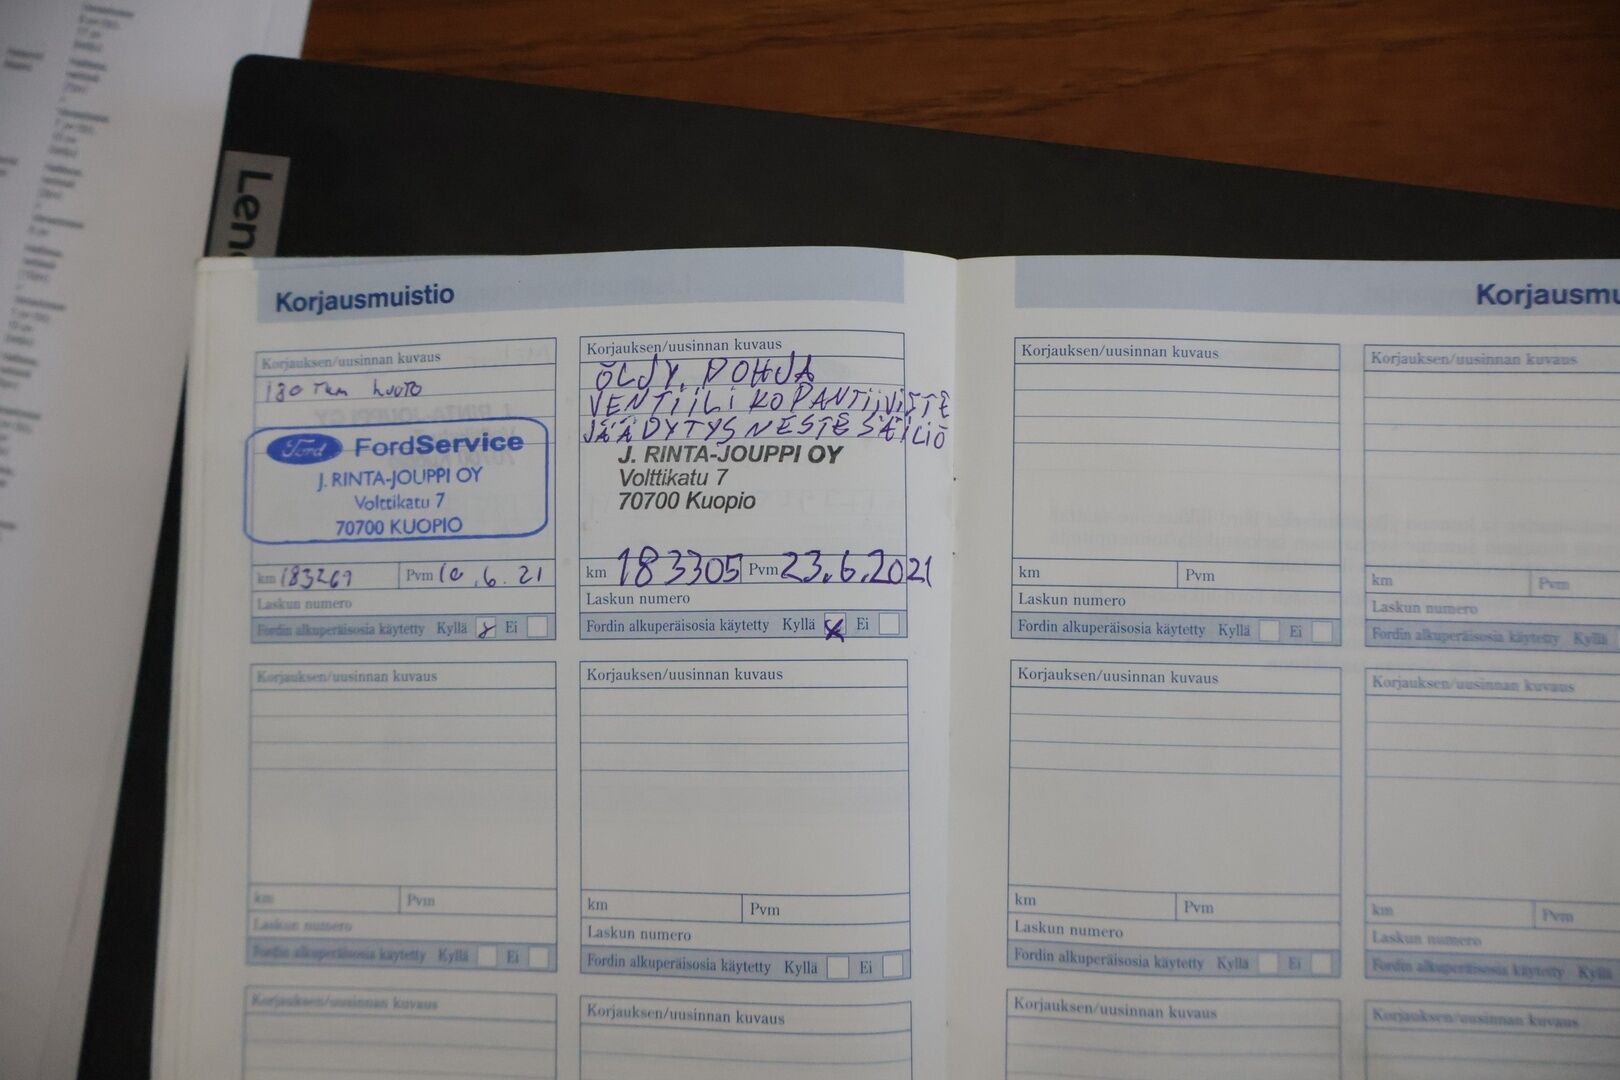 Leno
Korjausmuistio
Korjauksen/uusinnan kuvaus
180 TKM HUOTO
Ford FordService
J. RINTA-JOUPPI OY
Volttikatu 7
70700 KUOPIO
km 183269 Pvm 10.6.21
Laskun numero
Fordin alkuperäisosia käytetty Kyllä x Ei
Korjauksen/uusinnan kuvaus
ÖLJY, POHJA
VENTIILI KOPANTIIVISTE
JÄÄDYTYSNESTESÄILIÖ
J. RINTA-JOUPPI OY
Volttikatu 7
70700 Kuopio
km 183305 Pvm 23.6.2021
Laskun numero
Fordin alkuperäisosia käytetty Kyllä x Ei
Korjauksen/uusinnan kuvaus
km Pvm
Laskun numero
Fordin alkuperäisosia käytetty Kyllä Ei
Korjauksen/uusinnan kuvaus
km Pvm
Laskun numero
Fordin alkuperäisosia käytetty Kyllä Ei
Korjauksen/uusinnan kuvaus
Korjauksen/uusinnan kuvaus
Korjausmu
Korjauksen/uusinnan kuvaus
km Pvm
Laskun numero
Fordin alkuperäisosia käytetty Kyllä Ei
Korjauksen/uusinnan kuvaus
km Pvm
Laskun numero
Fordin alkuperäisosia käytetty Kyllä
Korjauksen/uusinnan kuvaus
km Pvm
Laskun numero
Fordin alkuperäisosia käytetty Kyllä Ei
Korjauksen/uusinnan kuvaus
km Pvm
Laskun numero
Fordin alkuperäisosia käytetty Kyllä
Korjauksen/uusinnan kuvaus
Korjauksen/uusinnan kuvaus